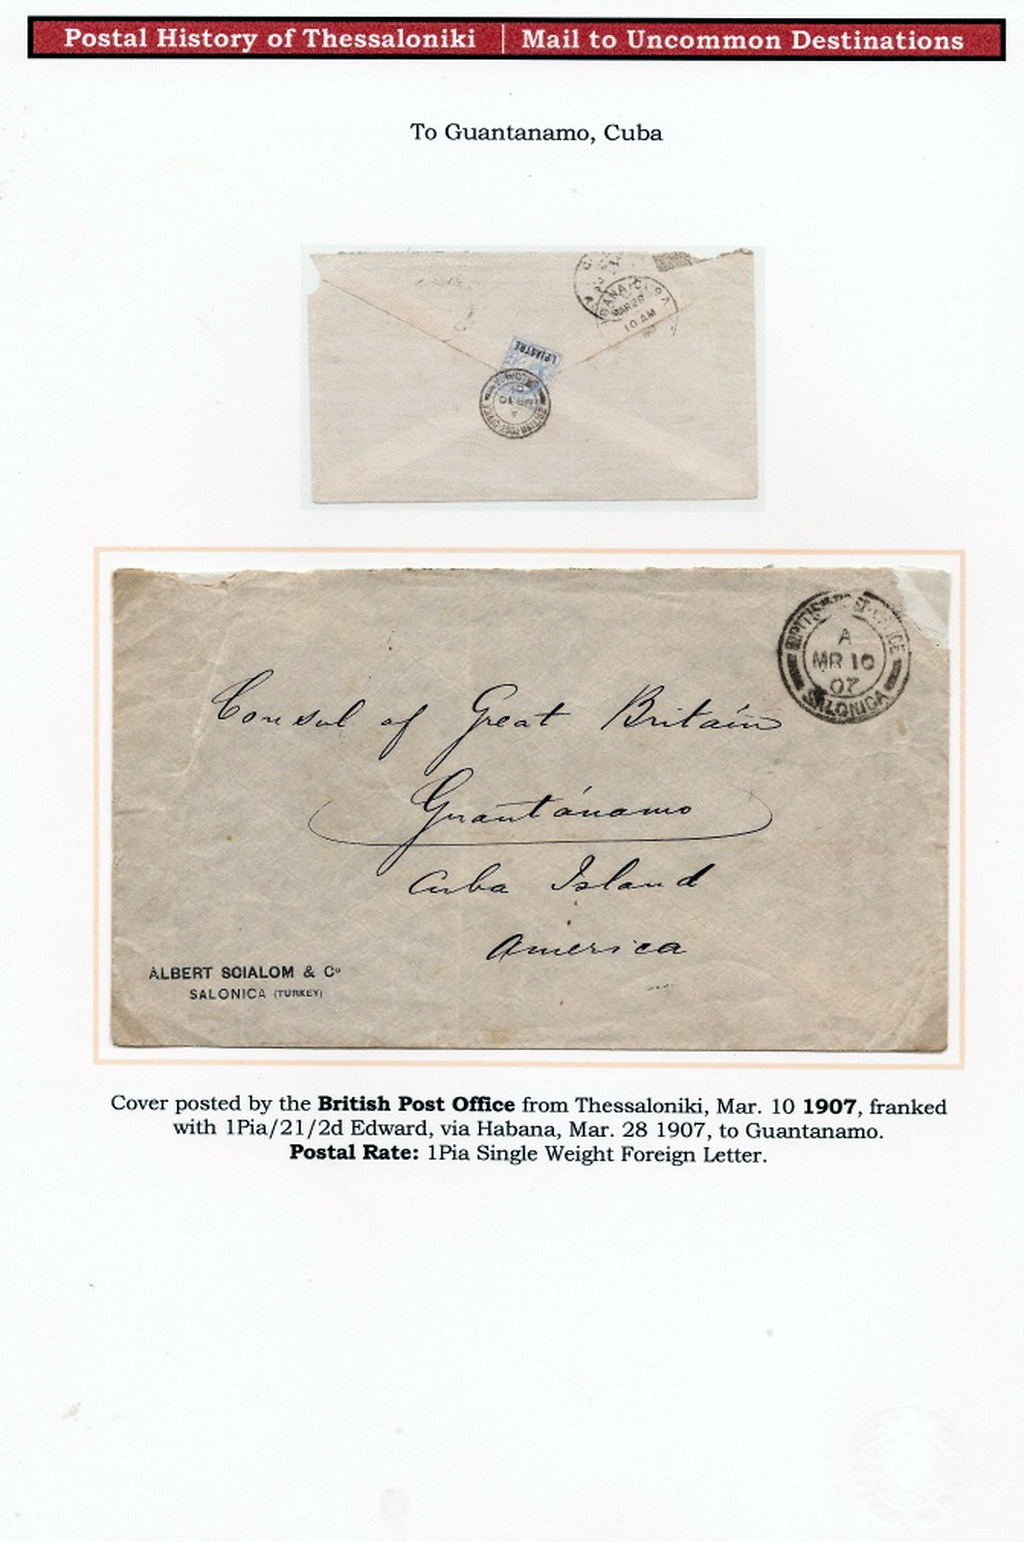 Postal History of Thessaloniki | Mail to Uncommon Destinations
To Guantanamo, Cuba
CUBA
MAR 28
10 AM
1 PIASTRE
A
MR 10
BRITISH POST OFFICE
A
MR 10
07
SALONICA
Consul of Great Britain
Guantánamo
Cuba Island
America
ALBERT SCIALOM & Co
SALONICA (TURKEY)
Cover posted by the British Post Office from Thessaloniki, Mar. 10 1907, franked
with 1Pia/21/2d Edward, via Habana, Mar. 28 1907, to Guantanamo.
Postal Rate: 1Pia Single Weight Foreign Letter.